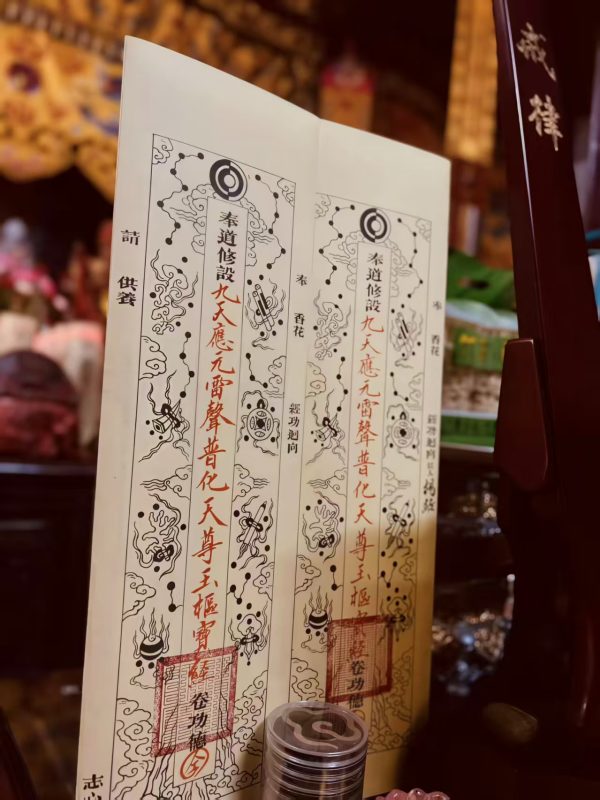 戒律
奉 香花
經功迴向
奉道修設九天應元雷聲普化天尊玉樞寶經卷功德
奉 香花
經功迴向
奉道修設九天應元雷聲普化天尊玉樞寶經卷功德
請 供養
志心